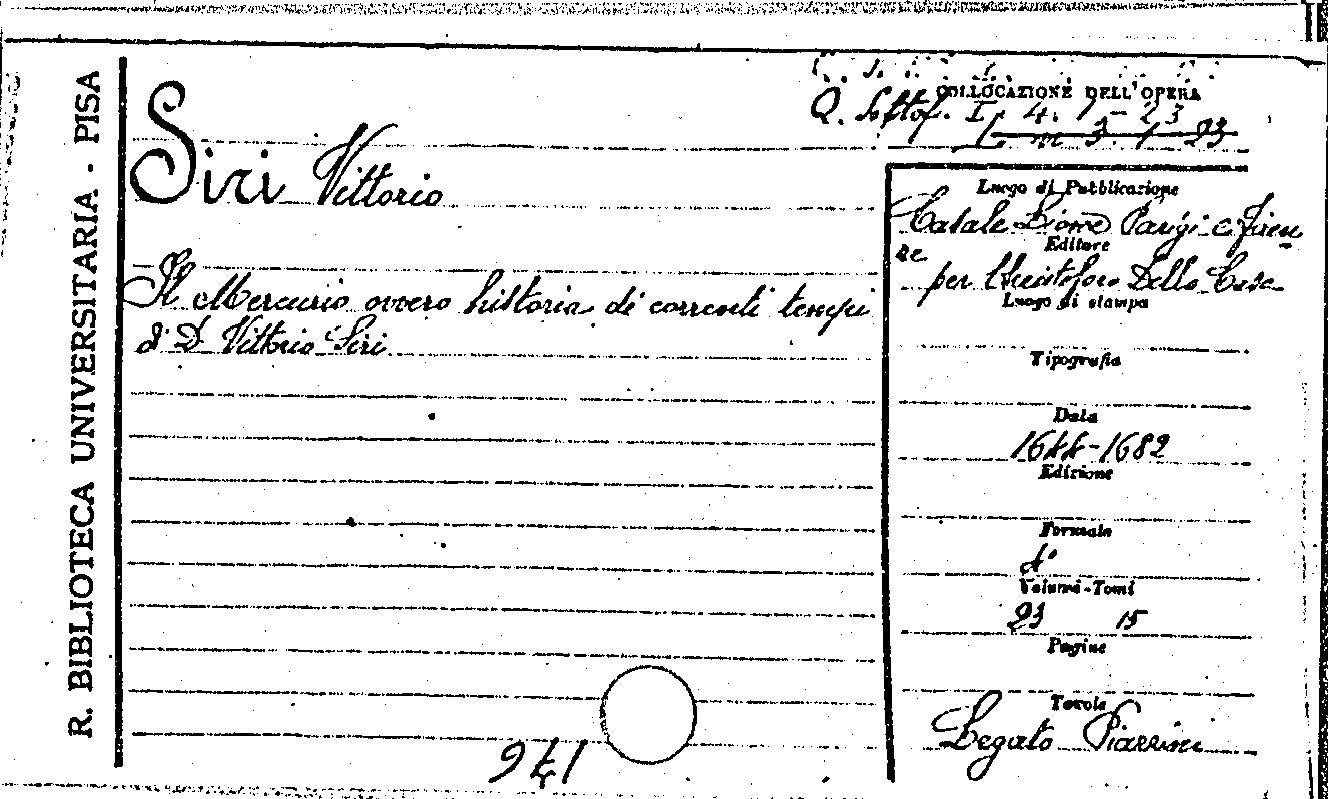 R. BIBLIOTECA UNIVERSITARIA - PISA
COLLOCAZIONE DELL'OPERA
Q. Sottof. I. 4. 1-23
I. m 3. 1 23
Siri Vittorio
Il Mercurio ovvero historia di correnti tempi
di D. Vittorio Siri
Luogo di Pubblicazione
Casale Lione Parigi e Firen
ze
Editore
per Christoforo Della Casa
Luogo di stampa
Tipografia
Data
1644-1682
Edizione
Formato
4°
Volumi-Tomi
23 15
Pagine
Tavole
Legato Piazzini